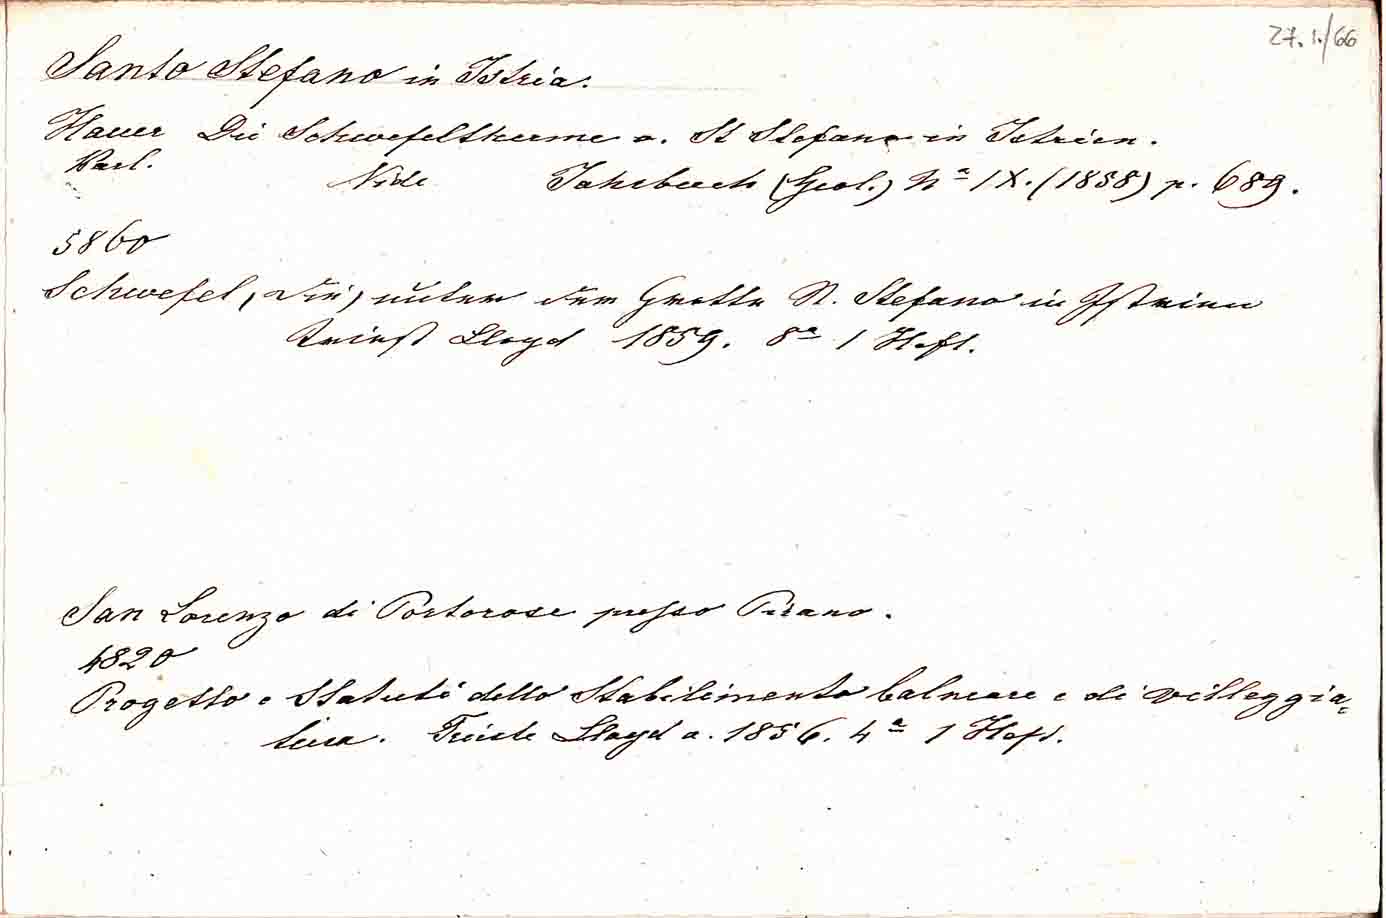 27. 1./66
Santo Stefano in Istria.
Hauer Die Schwefeltherme a. St Stefano in Istrien.
Karl.
Vide Jahrbuch (Geol.) No IX. (1858) p. 689.
5860
Schwefel, die, unter der Grotte St. Stefano in Istrien
Triest Lloyd 1859. 8o 1 Heft.
San Lorenzo di Portorose presso Pirano.
4820
Progetto e Statuti dello Stabilimento balneare e di villeggia=
tura. Trieste Lloyd a. 1856. 4o 1 Heft.